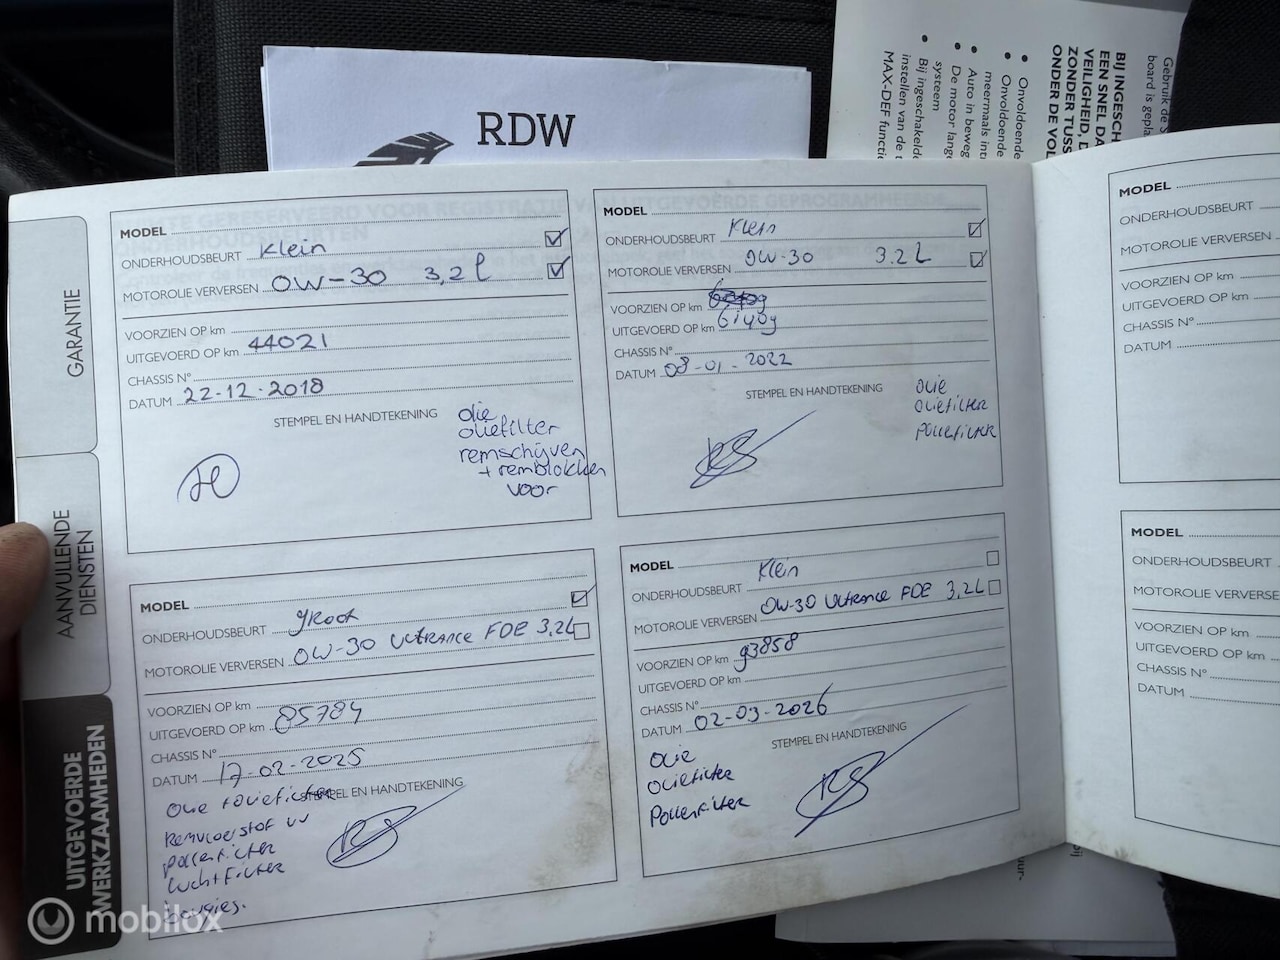 RDW
Gebruik de S
board is gepla
BIJ INGESCH
EEN SNEL DA
VEILIGHEID, D
ZONDER TUSS
ONDER DE VOL
• Onvoldoende
• Onvoldoende
meermaals int
• Auto in beweg
• De motor lang
systeem
• Bij ingeschakelde
instellen van de t
MAX-DEF functi
GARANTIE
AANVULLENDE
DIENSTEN
UITGEVOERDE
WERKZAAMHEDEN
MODEL
ONDERHOUDSBEURT Klein
MOTOROLIE VERVERSEN 0W-30 3,2 l
VOORZIEN OP km
UITGEVOERD OP km 44021
CHASSIS N°
DATUM 22-12-2018
STEMPEL EN HANDTEKENING
olie
oliefilter
remschijven
+ remblokken
voor
MODEL
ONDERHOUDSBEURT Klein
MOTOROLIE VERVERSEN 0W-30 3.2 L
VOORZIEN OP km
UITGEVOERD OP km 61409
CHASSIS N°
DATUM 08-01-2022
STEMPEL EN HANDTEKENING
olie
oliefilter
pollenfilter
MODEL
ONDERHOUDSBEURT groot
MOTOROLIE VERVERSEN 0W-30 Ultrance FDE 3,2L
VOORZIEN OP km
UITGEVOERD OP km 85784
CHASSIS N°
DATUM 17-02-2025
STEMPEL EN HANDTEKENING
olie + oliefilter
Remvloeistof vv
pollenfilter
luchtfilter
bougies.
MODEL
ONDERHOUDSBEURT Klein
MOTOROLIE VERVERSEN 0W-30 Ultrance FDE 3,2L
VOORZIEN OP km 93858
UITGEVOERD OP km
CHASSIS N°
DATUM 02-03-2026
STEMPEL EN HANDTEKENING
Olie
Oliefilter
Pollenfilter
MODEL
ONDERHOUDSBEURT
MOTOROLIE VERVERSEN
VOORZIEN OP km
UITGEVOERD OP km
CHASSIS N°
DATUM
MODEL
ONDERHOUDSBEURT
MOTOROLIE VERVERSE
VOORZIEN OP km
UITGEVOERD OP km
CHASSIS N°
DATUM
mobilox